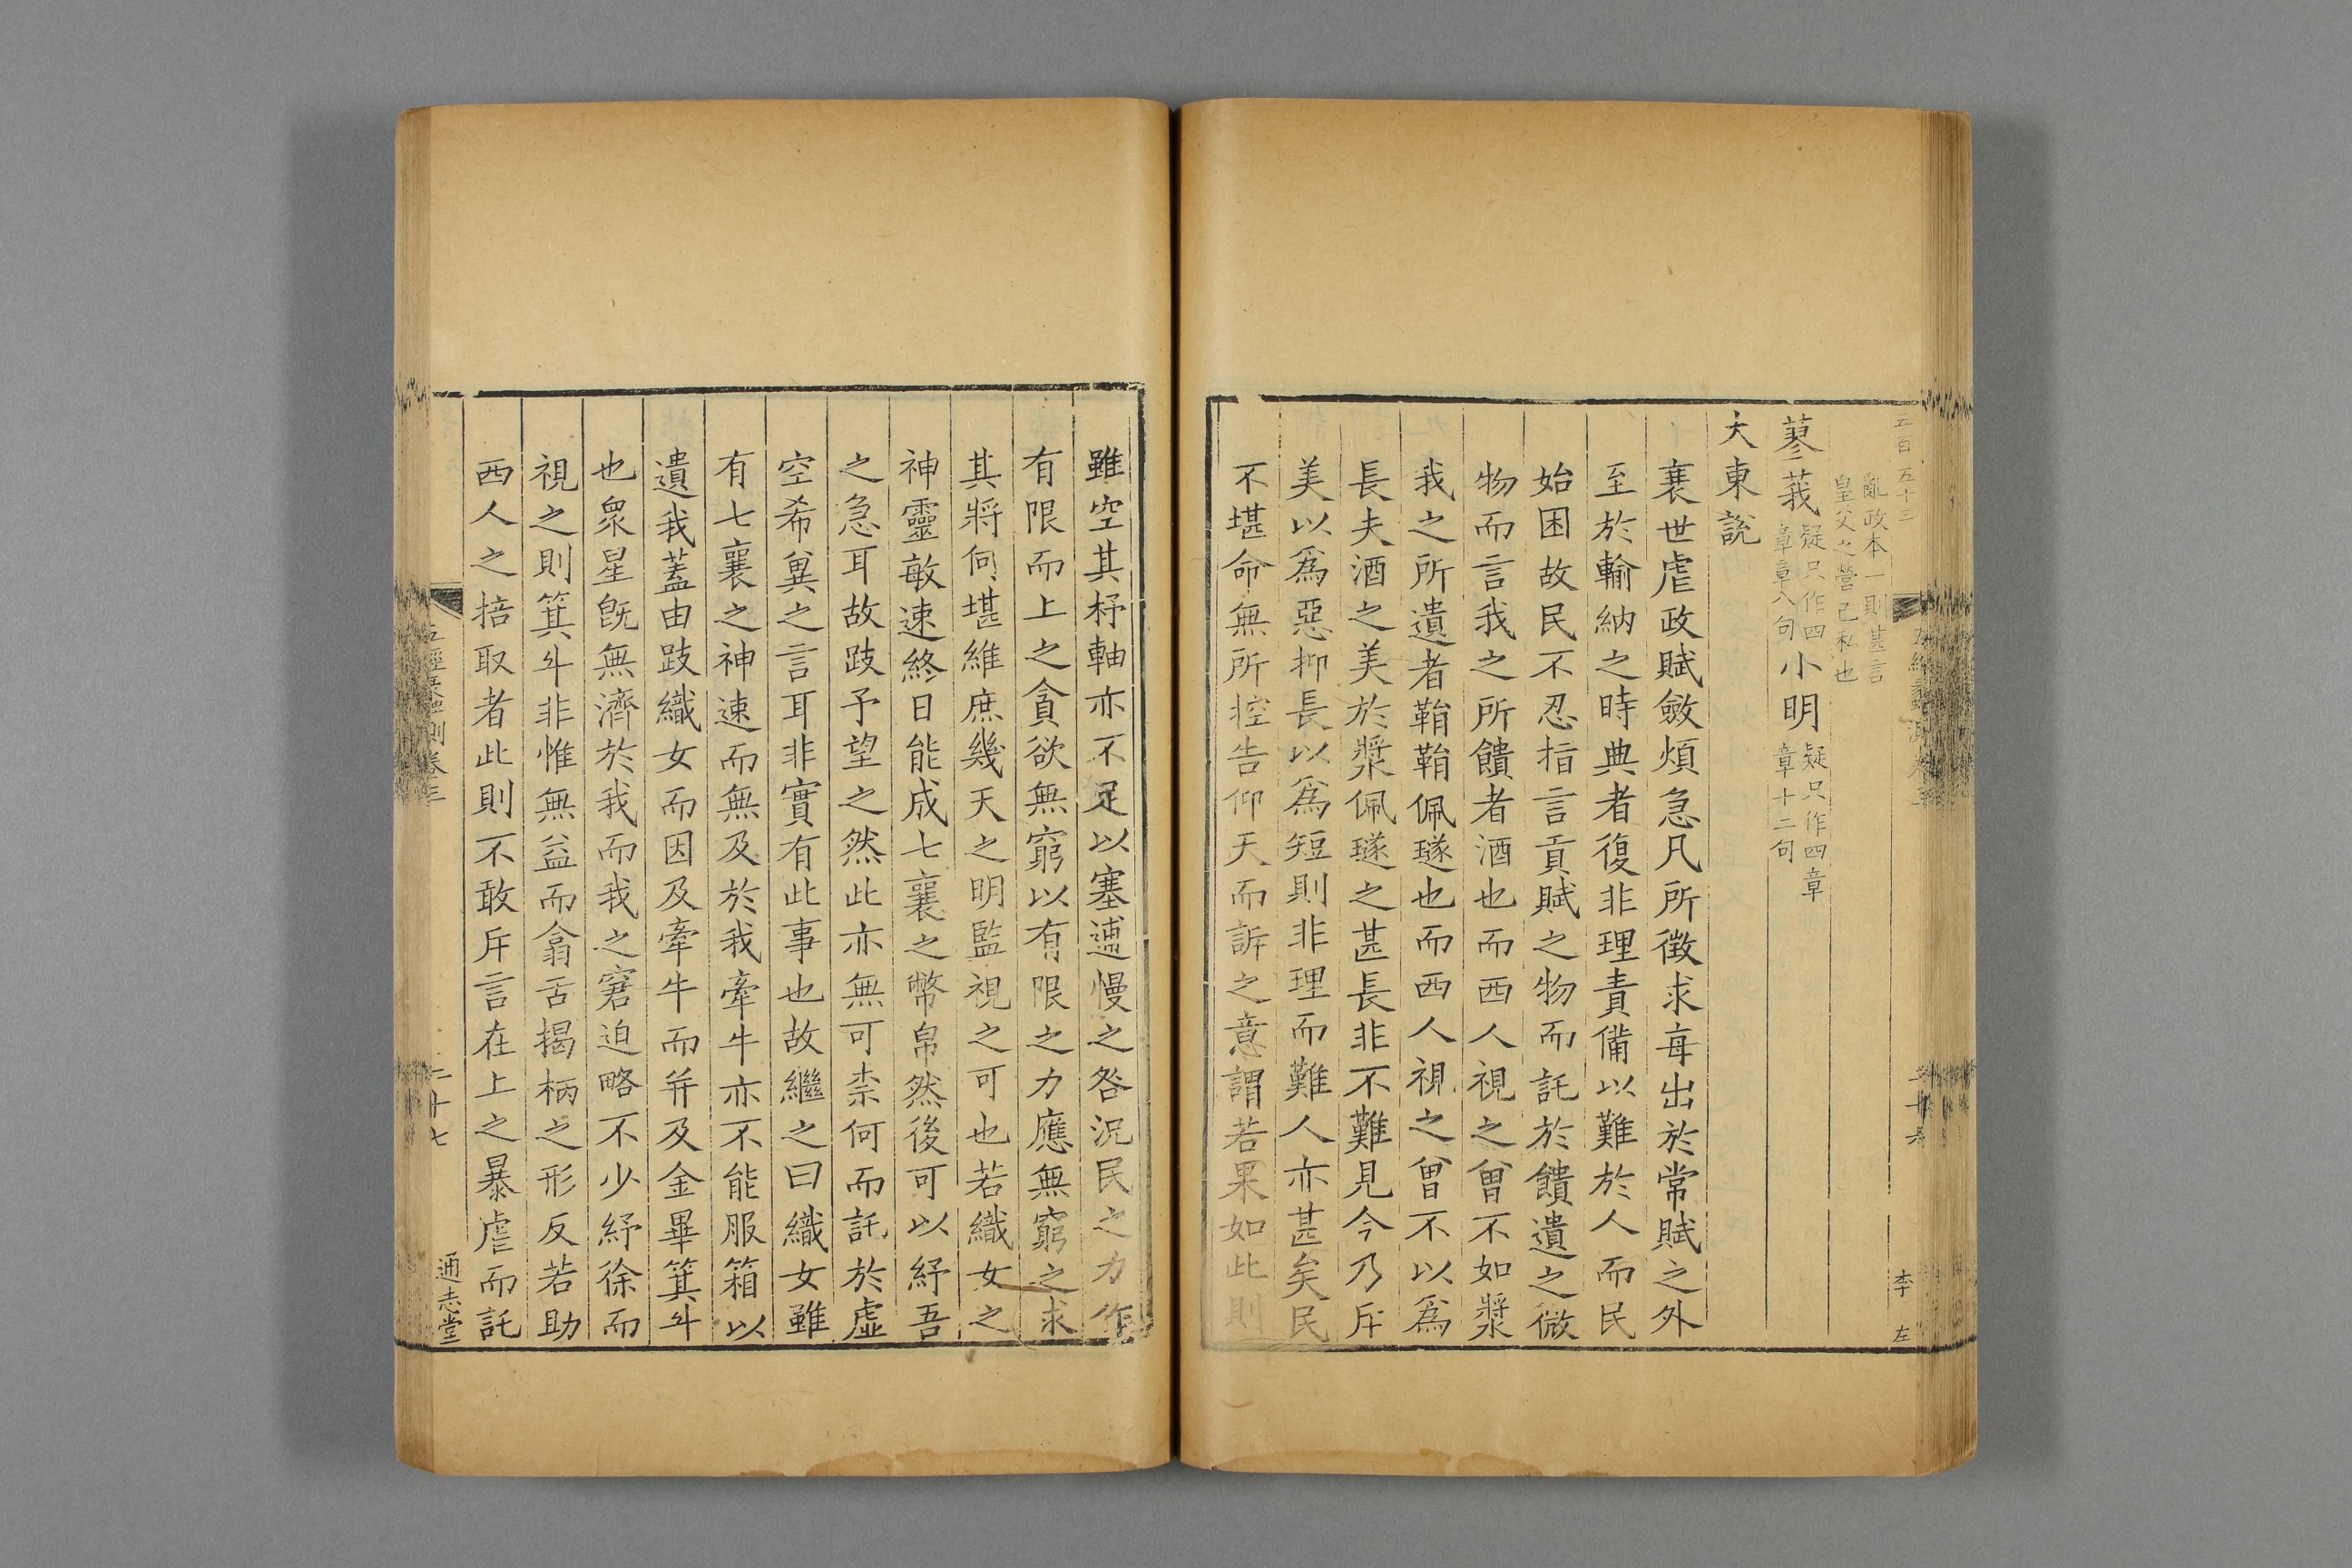 五百五十三
亂政本一則甚言
皇父之營已私也
蓼莪 疑只作四章章八句 小明 疑只作四章章十二句
大東說
衰世虐政賦斂煩急凡所徵求每出於常賦之外
至於輸納之時典者復非理責備以難於人而民
始困故民不忍指言貢賦之物而託於饋遺之微
物而言我之所饋者酒也而西人視之曾不如漿
我之所遺者鞙鞙佩璲也而西人視之曾不以爲
長夫酒之美於漿佩璲之甚長非不難見今乃斥
美以爲惡抑長以爲短則非理而難人亦甚矣民
不堪命無所控告仰天而訴之意謂若果如此則
雖空其杼軸亦不足以塞逋慢之咎況民之力作
有限而上之貪欲無窮以有限之力應無窮之求
其將何堪維庶幾天之明監視之可也若織女之
神靈敏速終日能成七襄之幣帛然後可以紓吾
之急耳故跂予望之然此亦無可柰何而託於虛
空希冀之言耳非實有此事也故繼之曰織女雖
有七襄之神速而無及於我牽牛亦不能服箱以
遺我蓋由跂織女而因及牽牛而并及金畢箕斗
也衆星旣無濟於我而我之窘迫略不少紓徐而
視之則箕斗非惟無益而翕舌揭柄之形反若助
西人之掊取者此則不敢斥言在上之暴虐而託
五經蠡測卷三
二十七
通志堂
李
左